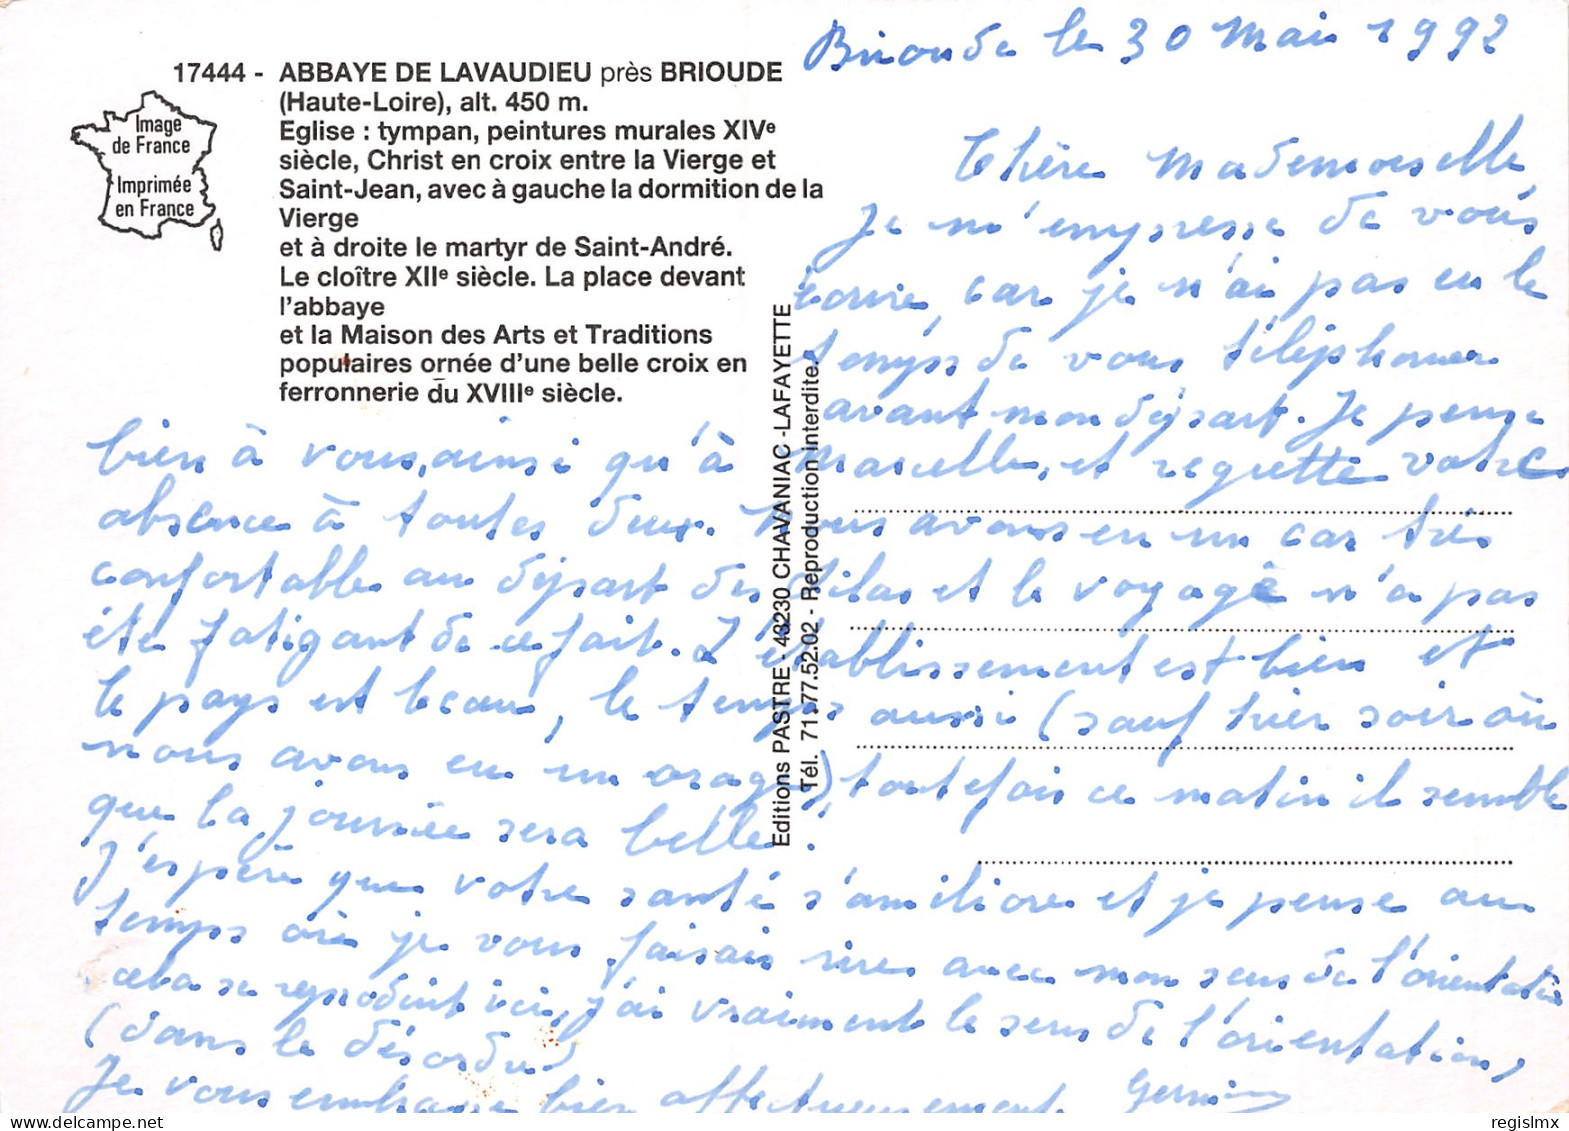 17444 - ABBAYE DE LAVAUDIEU près BRIOUDE
(Haute-Loire), alt. 450 m.
Eglise : tympan, peintures murales XIVe
siècle, Christ en croix entre la Vierge et
Saint-Jean, avec à gauche la dormition de la
Vierge
et à droite le martyr de Saint-André.
Le cloître XIIe siècle. La place devant
l'abbaye
et la Maison des Arts et Traditions
populaires ornée d'une belle croix en
ferronnerie du XVIIIe siècle.
Image
de France
Imprimée
en France
Editions PASTRE - 43230 CHAVANIAC-LAFAYETTE
Tél. 71.77.52.02 - Reproduction interdite.
Brioude le 30 Mai 1992
Chère Mademoiselle,
Je m'empresse de vous
écrire, car je n'ai pas eu le
temps de vous téléphoner
avant mon départ. Je pense
bien à vous, ainsi qu'à Marcelle, et regrette votre
absence à toutes deux. Nous avons eu un car très
confortable au départ des Lilas et le voyage n'a pas
été fatigant de ce fait. L'établissement est bien et
le pays est beau, le temps aussi (sauf hier soir où
nous avons eu un orage), toutefois ce matin il semble
que la journée sera belle.
J'espère que votre santé s'améliore et je pense au
temps où je vous faisais rire avec mon sens de l'orientation
cela se reproduit ici, j'ai vraiment le sens de l'orientation,
(dans le désordre)
Je vous embrasse bien affectueusement
regislmx